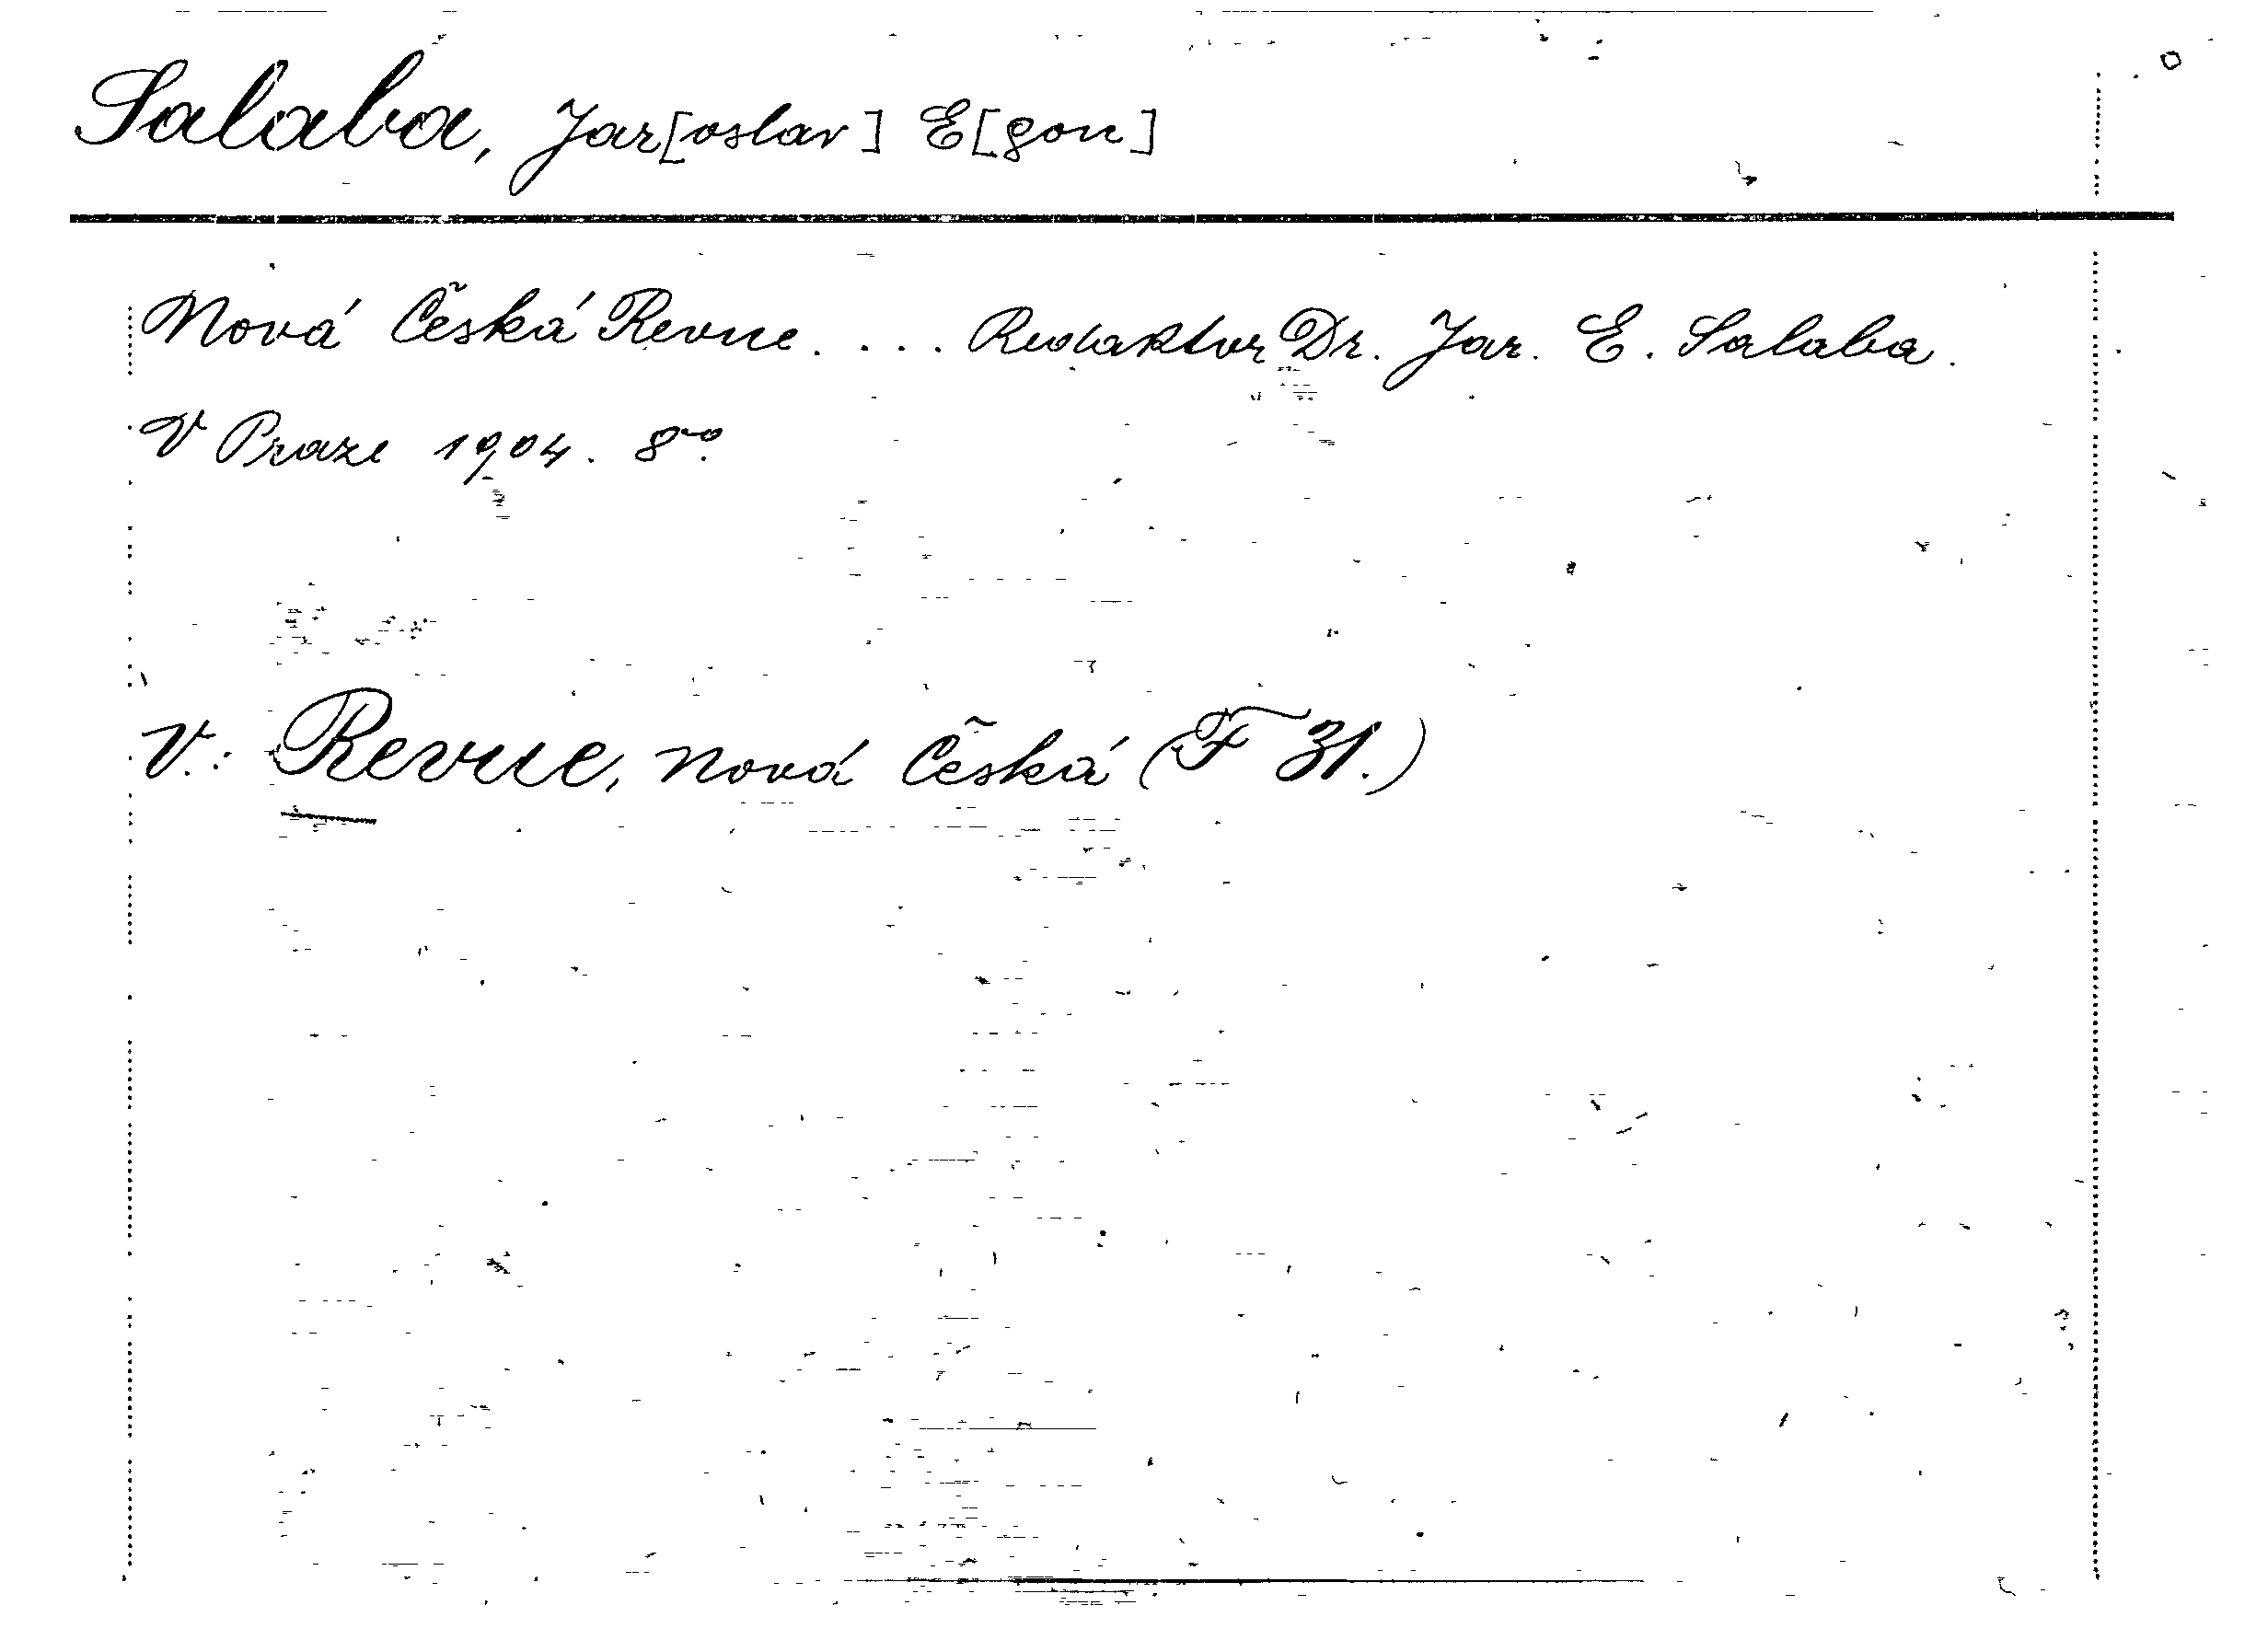 Salaba, Jar[oslav] E[gon]
Nová Česká Revue. ... Redaktor Dr. Jar. E. Salaba.
V Praze 1904. 8vo.
V.: Revue, Nová Česká (F 31.)